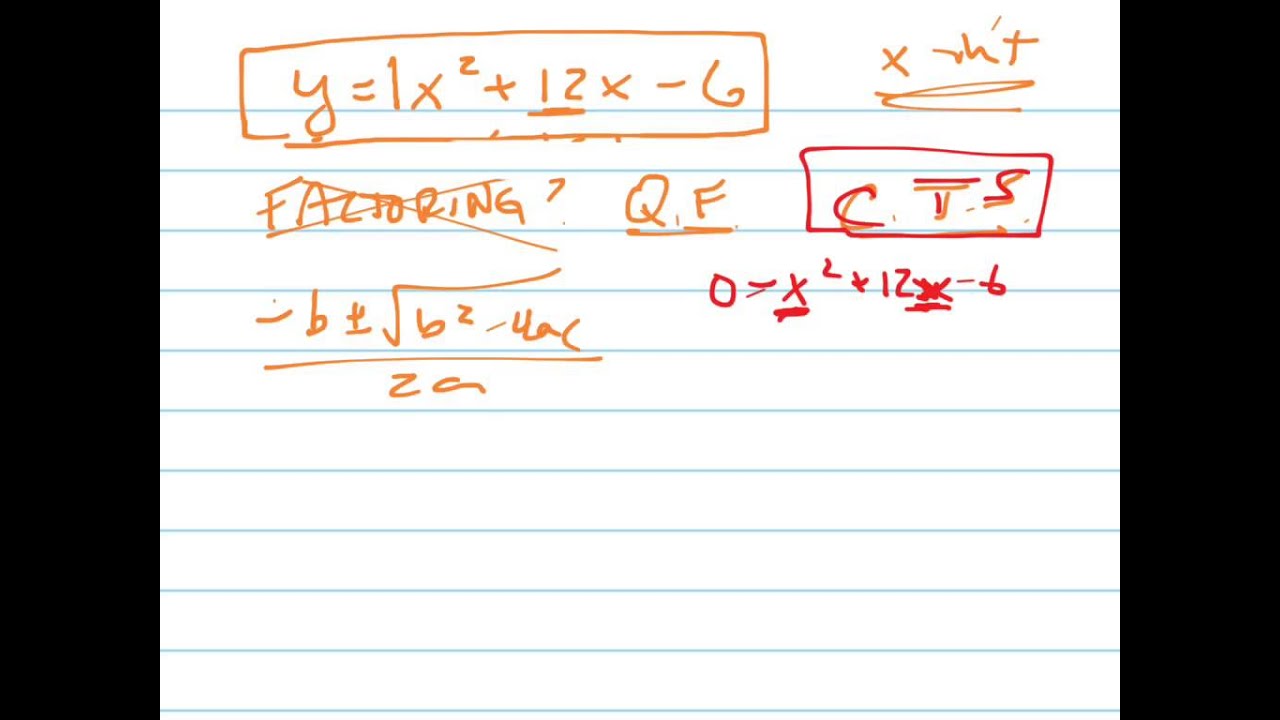 y = 1x² + 12x - 6
x-int
FACTORING? Q.F. C.T.S.
0 = x² + 12x - 6
-b ± √b² - 4ac
2a